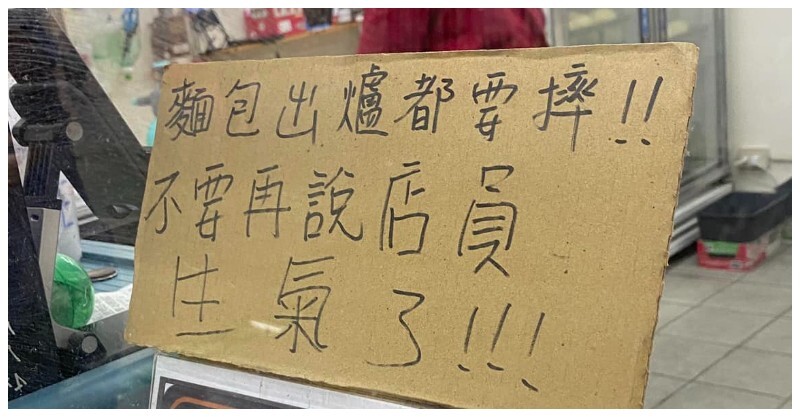 麵包出爐都要摔!!
不要再說店員
生氣了!!!